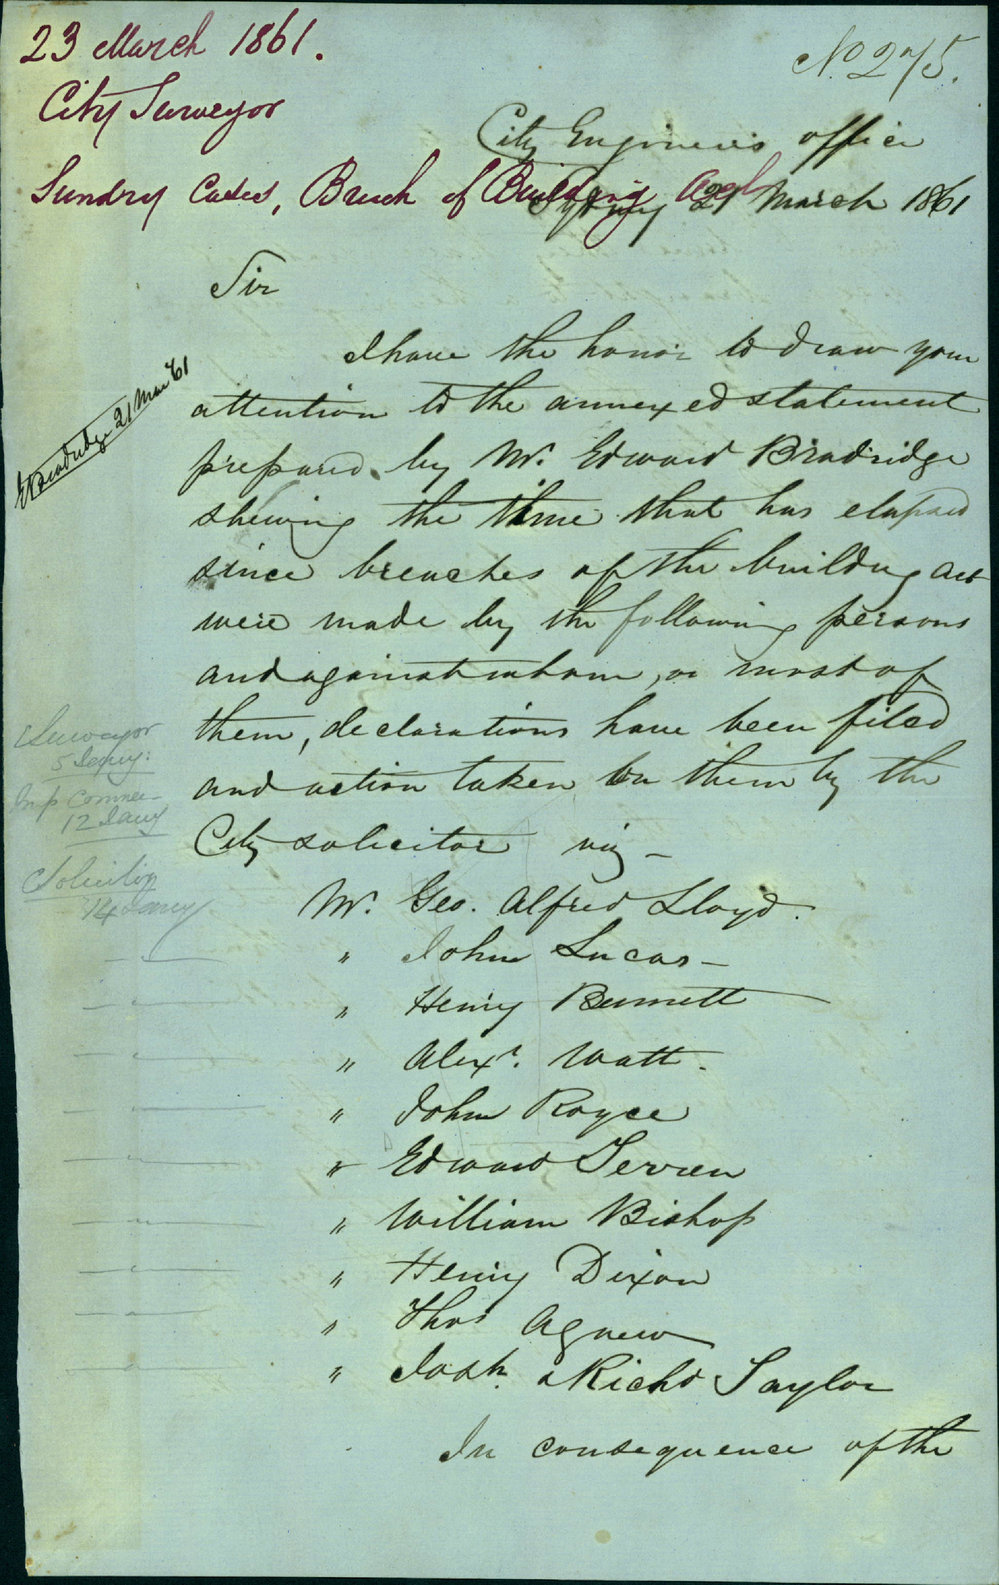 23 March 1861.
No. 275.
City Surveyor
City Engineer's office
Sundry Cases, Breach of Building Act
Sydney 21 March 1861
Sir
I have the honor to draw your
EBradridge 21 Mar 61
attention to the annexed statement
prepared by Mr. Edward Bradridge
shewing the time that has elapsed
since breaches of the building act
were made by the following persons
and against whom, or most of
them, declarations have been filed
and action taken on them by the
City solicitor viz –
Surveyor
5 Jany:
Imp Commee
12 Jany
Solicitor
14 Jany
Mr. Geo. Alfred Lloyd.
" John Lucas –
" Henry Burnett
" Alexr. Watt.
" John Royce
" Edward Terren
" William Bishop
" Henry Dixon
" Thos Agnew
" Josh. & Richd Taylor
In consequence of the